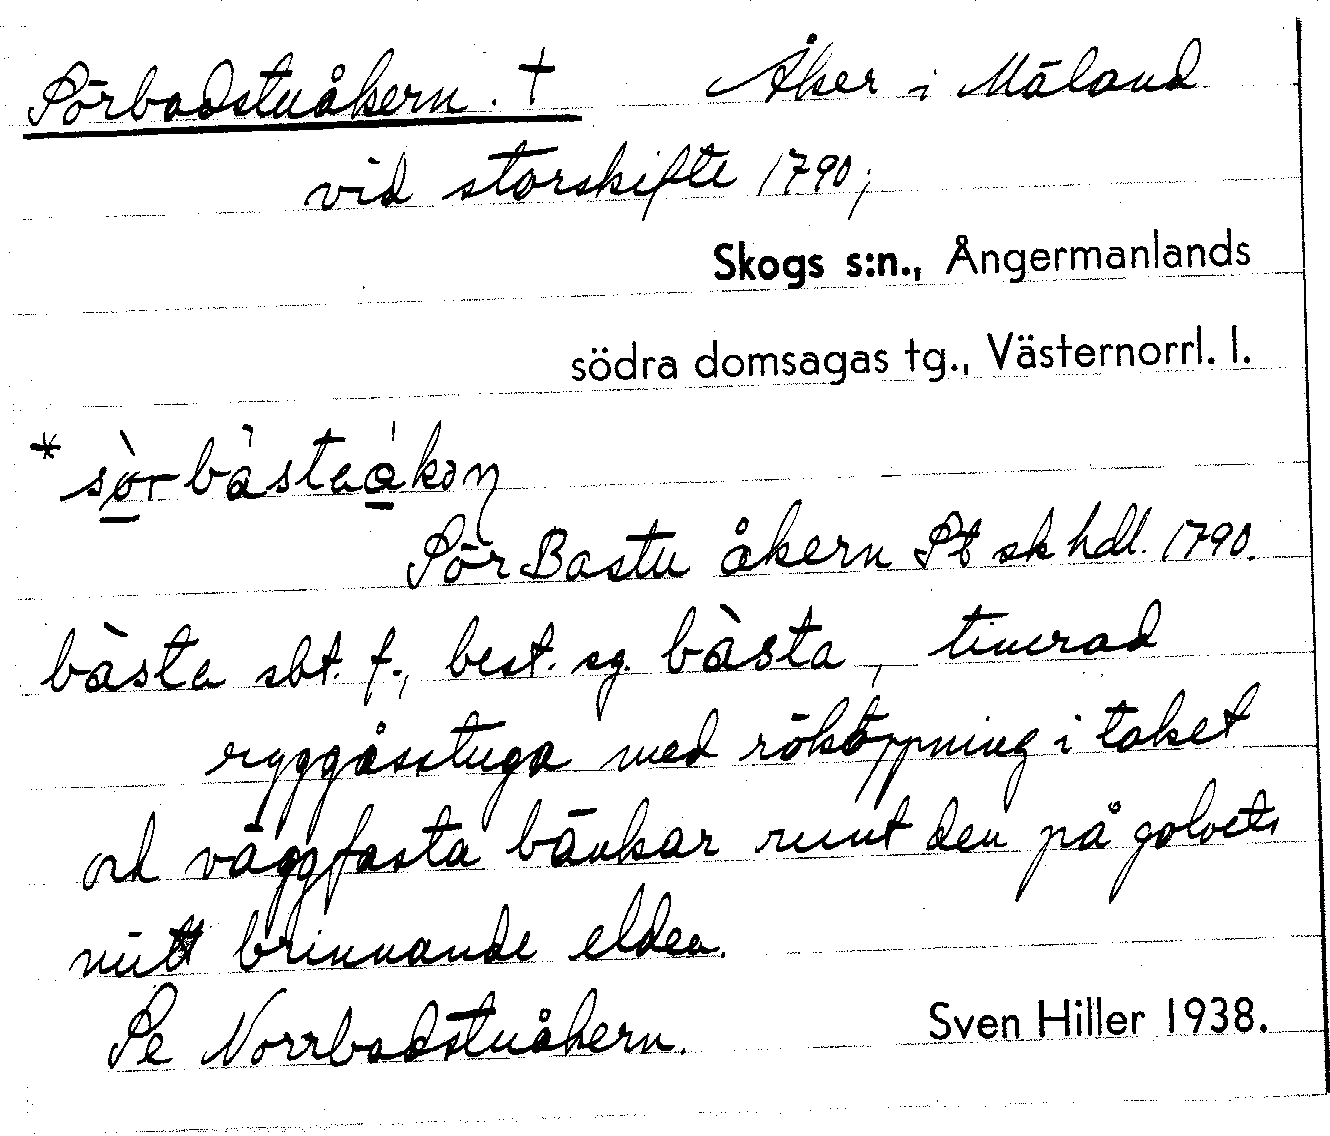 Sörbadstuåkern. † Åker i Mäland
vid storskifte 1790;
Skogs s:n., Ångermanlands
södra domsagas tg., Västernorrl. l.
* sòrbàstuákən
Sör Bastu åkern St sk hdl. 1790.
bàsta sbt. f., best. sg. bàsta, timrad
ryggåsstuga med rököppning i taket
och väggfasta bänkar runt den på golvets
mitt brinnande elden.
Se Norrbadstuåkern. Sven Hiller 1938.